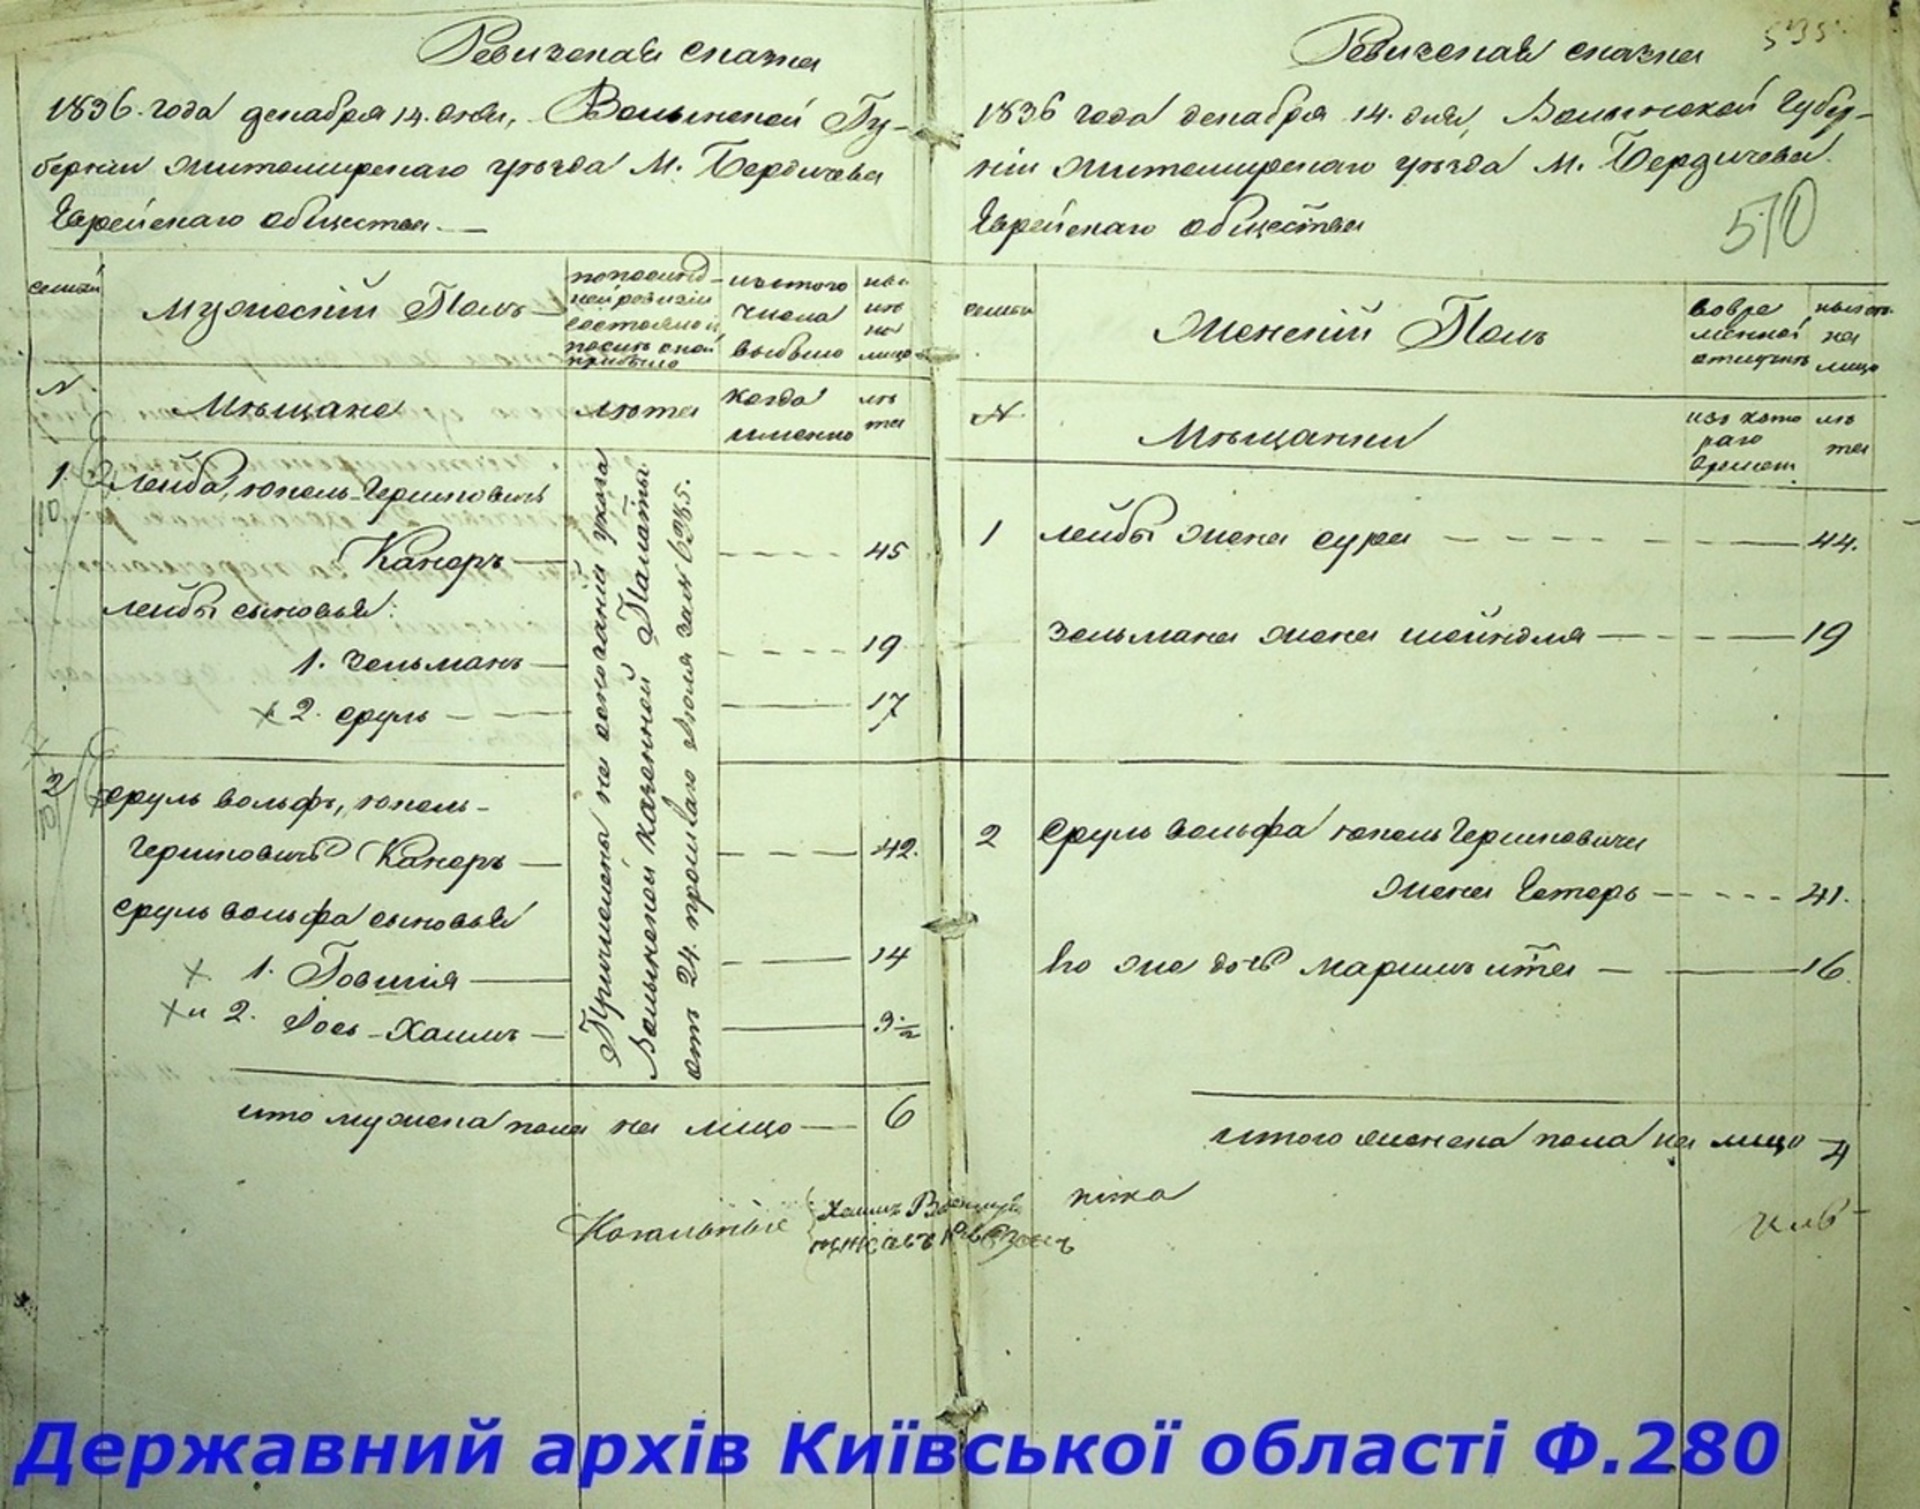 Ревизская сказка
1836. года декабря 14. дня, Волынской Гу-
бернии Житомирскаго уѣзда М. Бердичева
Еврейскаго общества. —
семьи
Мужескій Полъ
по послѣд-
ней ревизіи
состояло и
послѣ оной
прибыло
изъ того
числа
выбыло
ны-
нѣ
на
лицо
N.
Мѣщане
лѣта
когда
именно
лѣ
та
1. Лейба, Юкель Гершковичъ
Канеръ — 45
Лейбы сыновья:
1. Зельманъ — 19
2. Сруль — 17
2 Сруль Вольфъ, Юкель-
Гершковичъ Канеръ — 42.
Сруль Вольфа сыновья
1. Говшія — 14
и 2. Іось-Хаимъ — 9 ½
Причислены на основаніи указа
Волынской Казенной Палаты
отъ 24. прошлаго Іюля за N 6385.
ито мужеска пола на лицо — 6
Кагальные
Хаимъ
535.
Ревизская сказка
1836 года декабря 14. дня, Волынской Губер-
ніи Житомирскаго уѣзда М. Бердичева.
Еврейскаго общества
510
семьи
Женскій Полъ
во вре
менной
отлучкѣ
нынѣ
на
лицо
N.
Мѣщанки
изъ кото
раго
времени.
лѣ
та
1 Лейбы жена Сура — 44.
Зельмана жена Шейндля — 19
2 Сруль Вольфа Юкель Гершковича
жена Естерь — 41.
Его же дочь Маршъ Ита — 16.
итого женска пола на лицо 4
Державний архів Київської області Ф.280